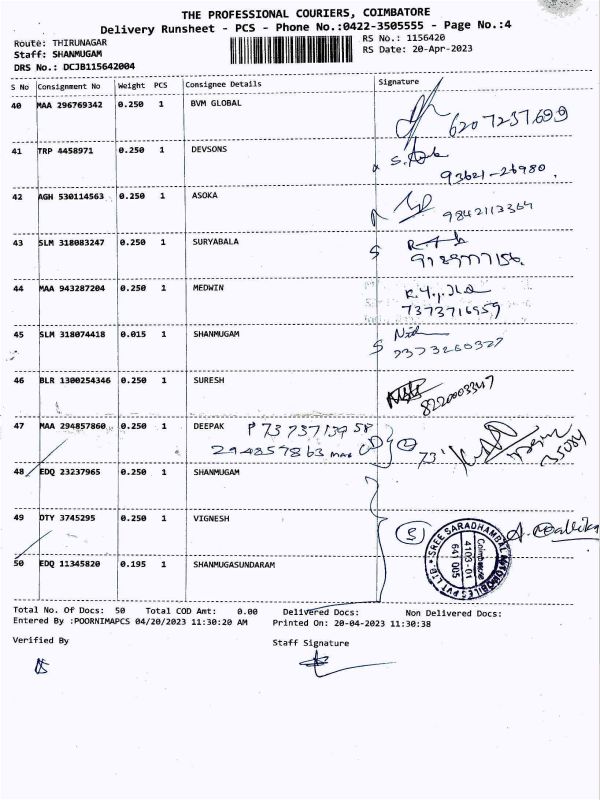 THE PROFESSIONAL COURIERS, COIMBATORE
Delivery Runsheet - PCS - Phone No.:0422-3505555 - Page No.:4
Route: THIRUNAGAR
RS No.: 1156420
Staff: SHANMUGAM
RS Date: 20-Apr-2023
DRS No.: DCJB115642004
S No Consignment No Weight PCS Consignee Details Signature
40 MAA 296769342 0.250 1 BVM GLOBAL
6207237699
41 TRP 4458971 0.250 1 DEVSONS
93621-26980.
42 AGH 530114563 0.250 1 ASOKA
9842113364
43 SLM 318083247 0.250 1 SURYABALA
44 MAA 943287204 0.250 1 MEDWIN
7373716959
45 SLM 318074418 0.015 1 SHANMUGAM
7373260327
46 BLR 1300254346 0.250 1 SURESH
8220003347
47 MAA 294857860 0.250 1 DEEPAK
P 7373713958
294857863 maa
2
73'
48 EDQ 23237965 0.250 1 SHANMUGAM
49 DTY 3745295 0.250 1 VIGNESH
5
SREE SARADHAMBAL AUTOMOBILES PVT LTD.
641 005
50 EDQ 11345820 0.195 1 SHANMUGASUNDARAM
Total No. Of Docs: 50 Total COD Amt: 0.00 Delivered Docs: Non Delivered Docs:
Entered By :POORNIMAPCS 04/20/2023 11:30:20 AM Printed On: 20-04-2023 11:30:38
Verified By Staff Signature